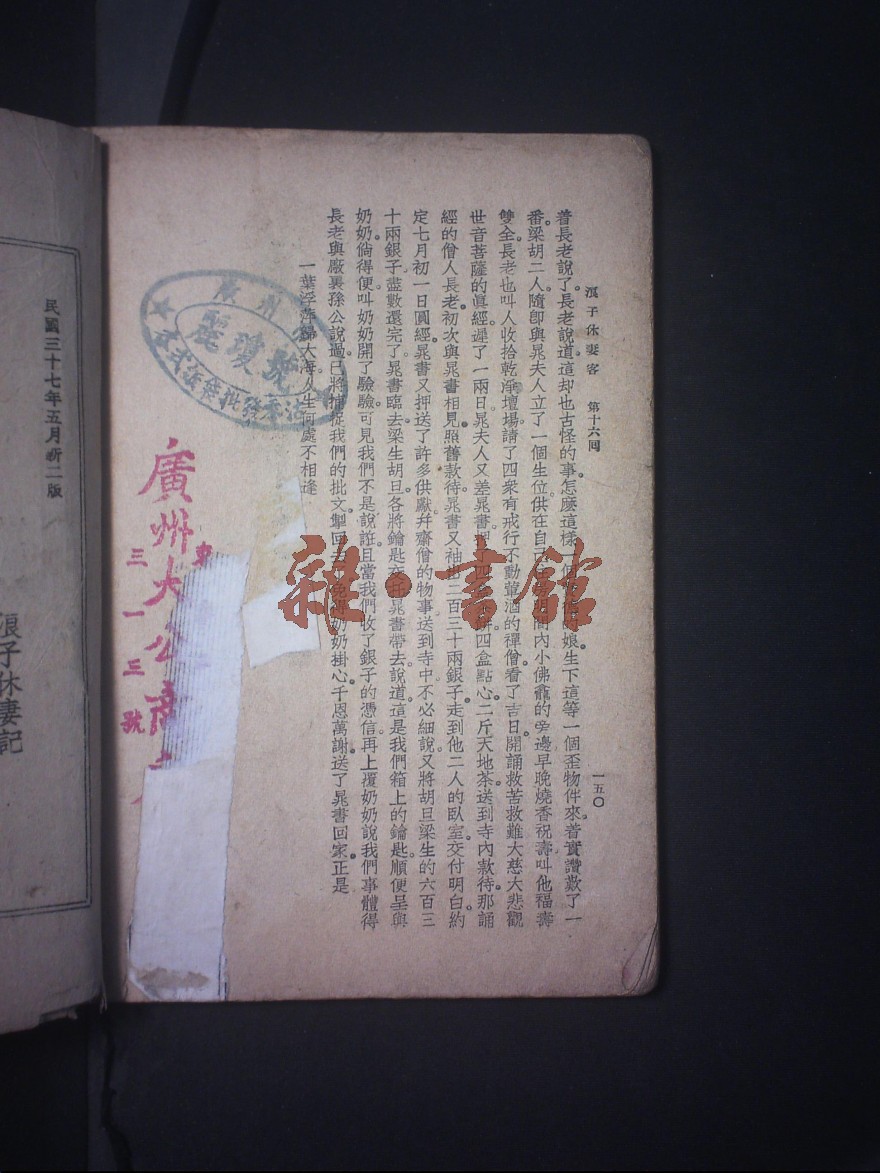 浪子休妻客 第十六囘
一五〇
着長老說了。長老說道。這却也古怪的事。怎麽這樣一個娘生下這等一個歪物件來。着實讚歎了一
番。梁胡二人。隨卽與晁夫人立了一個生位。供在自己間內小佛龕的旁邊。早晚燒香祝壽。叫他福壽
雙全。長老也叫人收拾乾淨壇場。請了四衆有戒行不動葷酒的禪僧。看了吉日。開誦救苦救難大慈大悲觀
世音菩薩的眞經。遲了一兩日。晁夫人又差晁書四盒點心。二斤天地茶。送到寺內。款待那誦
經的僧人。長老初次與晁書相見。照舊款待。晁書又袖出二百三十兩銀子。走到他二人的臥室。交付明白。約
定七月初一日圓經。晁書又押送了許多供獻幷齋僧的物事。送到寺中。不必細說。又將胡旦梁生的六百三
十兩銀子。盡數還完了。晁書臨去。梁生胡旦各將鑰匙交托晁書帶去。說道。這是我們箱上的鑰匙。順便呈與
奶奶。倘得便叫奶奶開了驗驗。可見我們不是說誑。且當我們收了銀子的憑信。再上覆奶奶。說我們事體得
長老與廠裏孫公說過。已將捕捉我們的批文掣回奶奶掛心。千恩萬謝。送了晁書回家。正是
一葉浮萍歸大海 人生何處不相逢
廣州
麗瓊號
批發
廣州大公
三一三號
民國三十七年五月新二版
浪子休妻記
雜·書館